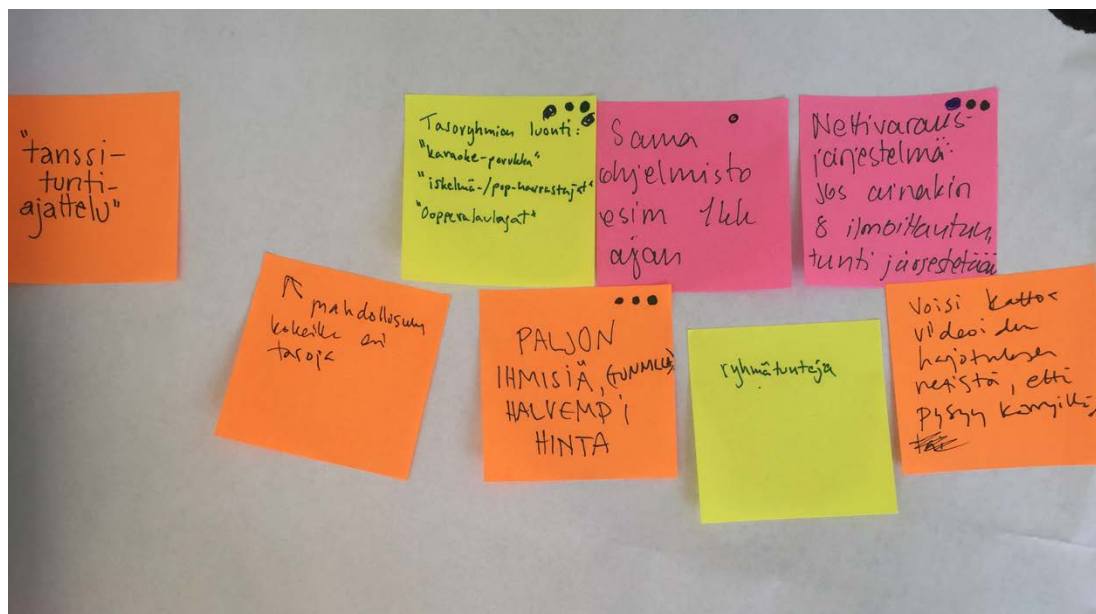 "tanssi-
tunti-
ajattelu"
Tasoryhmien luonti:
"karaoke-porukka"
"iskelmä-/pop-harrastajat"
"Oopperalaulajat"
Sama
ohjelmisto
esim 1kk
ajan
Nettivaraus-
järjestelmä:
jos ainakin
8 ilmoittautuu,
tunti järjestetään
mahdollisuus
kokeilla eri
tasoja
PALJON
IHMISIÄ, (TUNNILLA)
HALVEMPI
HINTA
ryhmätunteja
Voisi kattoo
videoiden
harjotuksen
netistä, että
pysyy kärryillä